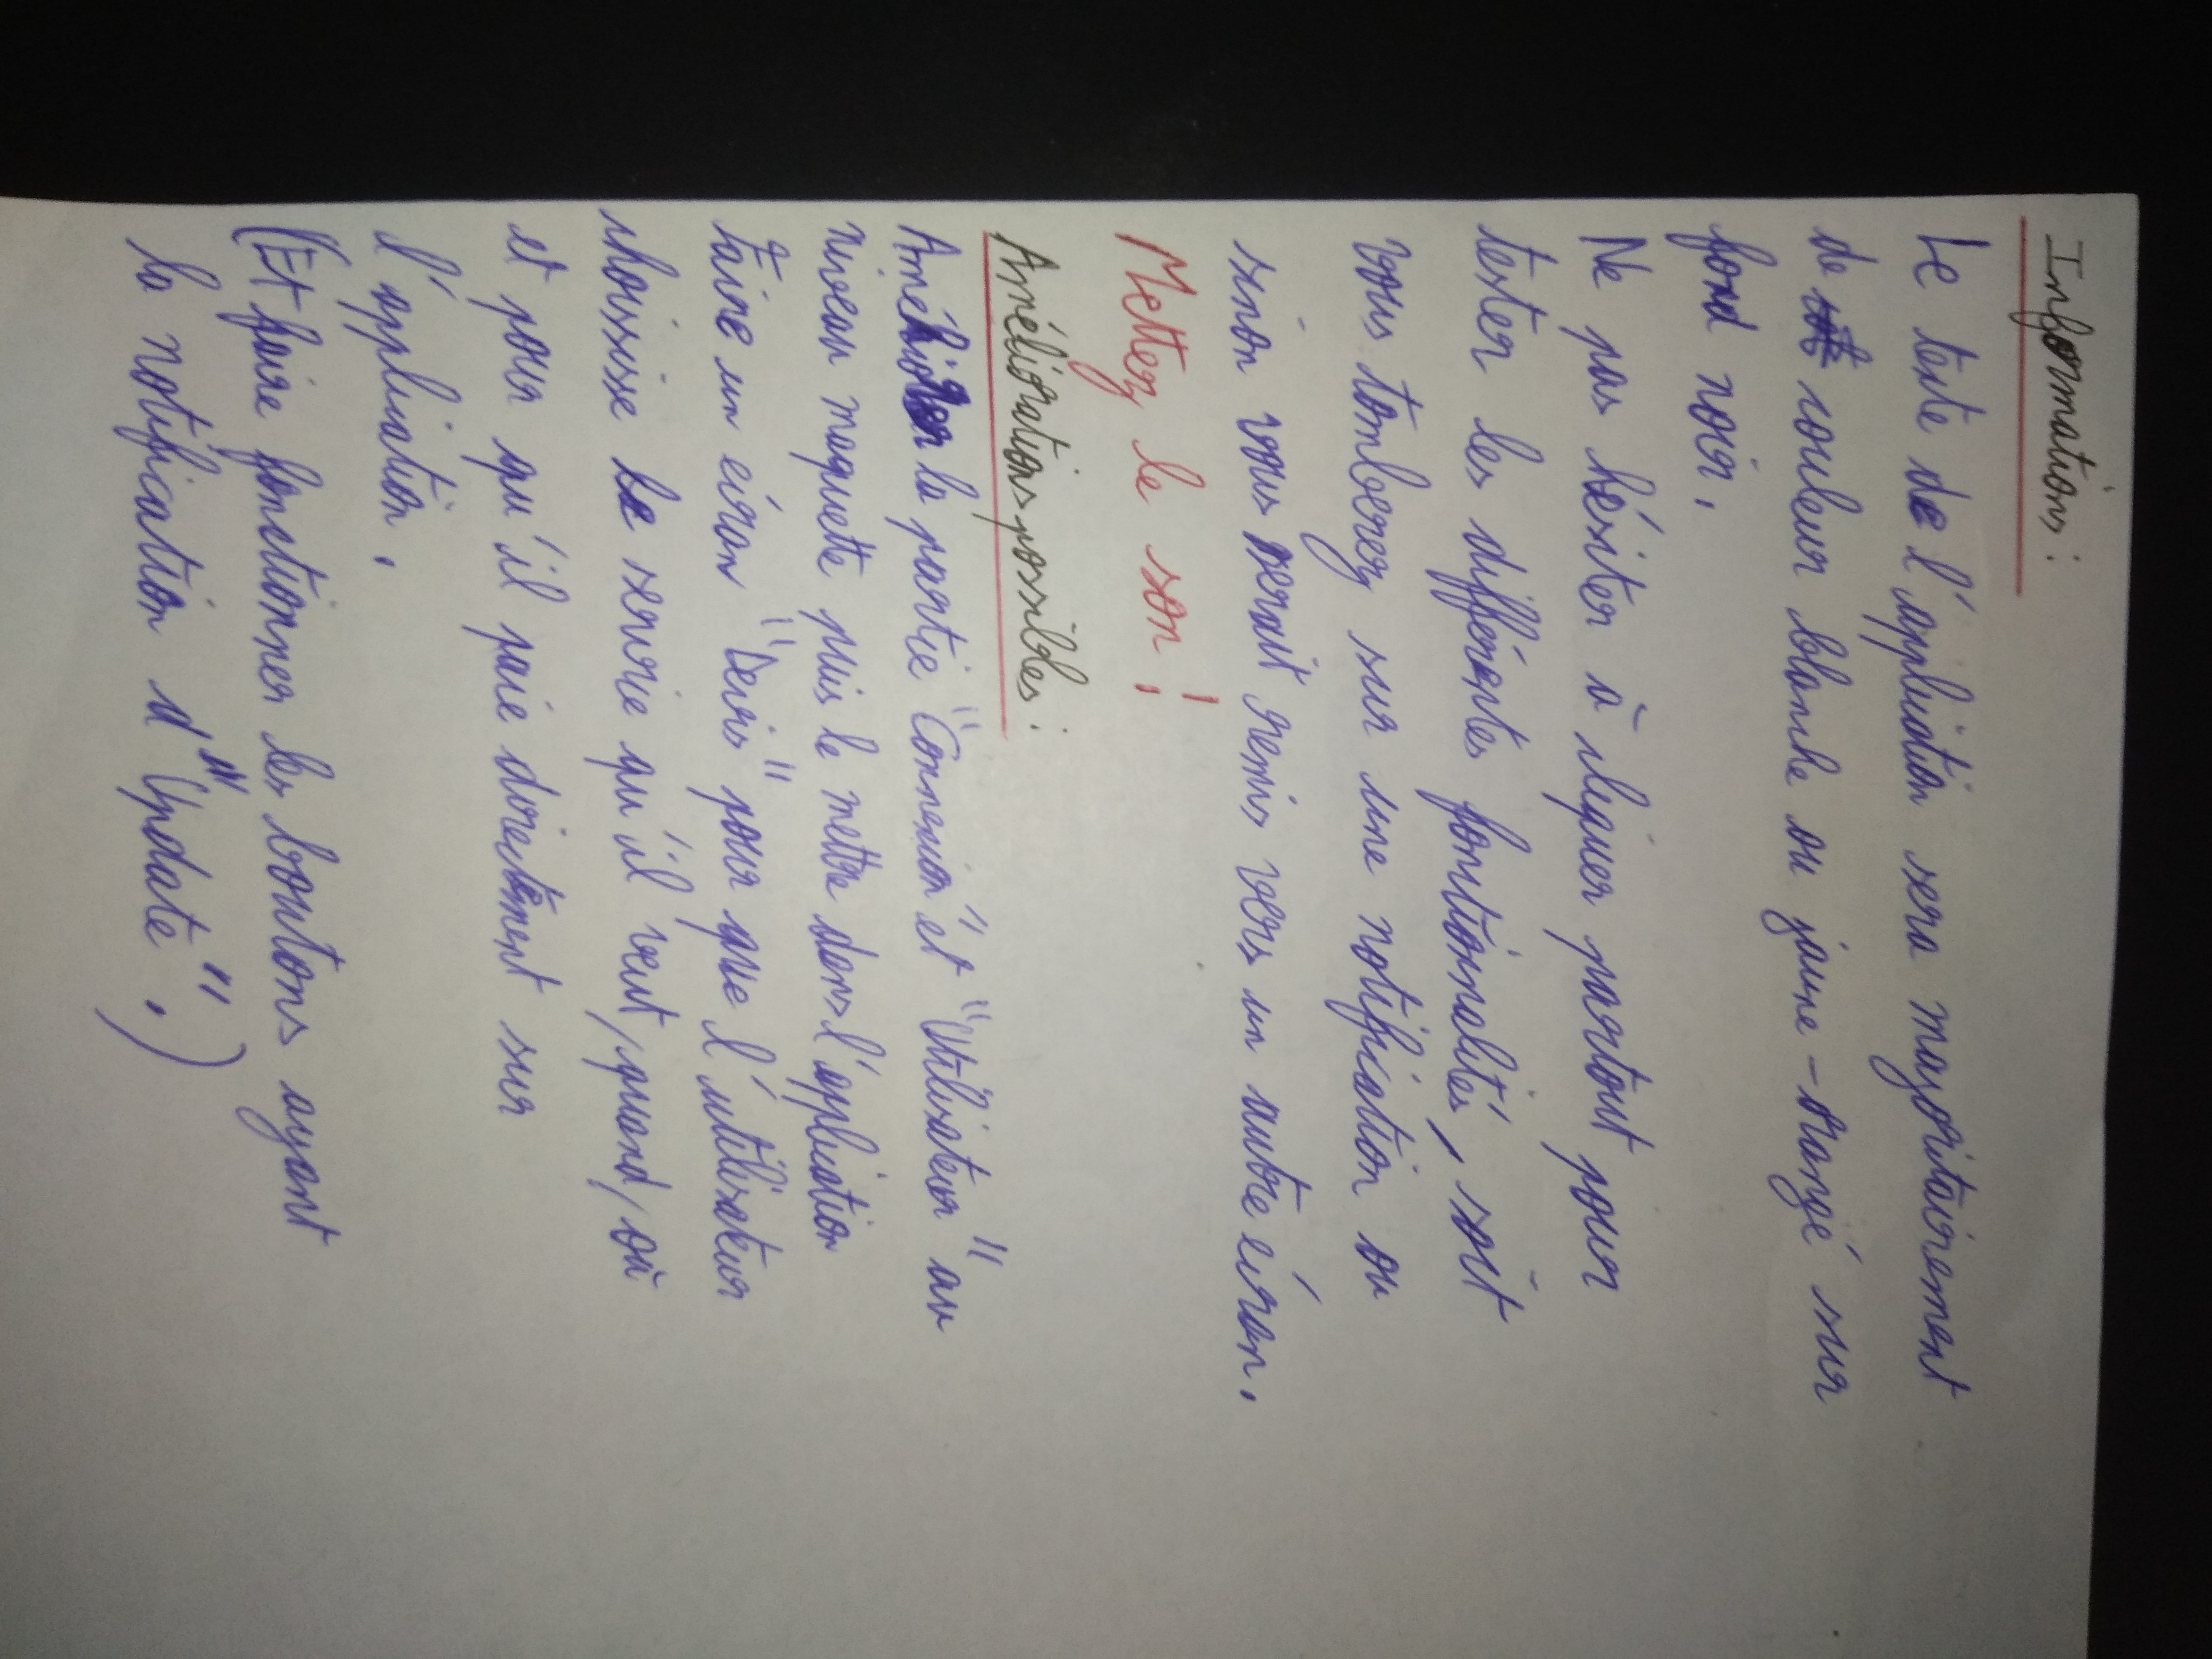 Informations :
Le texte de l'application sera majoritairement
de couleur blanche ou jaune-orangé sur
fond noir.
Ne pas hésiter à cliquer partout pour
tester les différentes fonctionnalités, soit
vous tomberez sur une notification ou
sinon vous serait remis vers un autre écran.
Mettez le son !
Améliorations possibles :
Améliorer la partie "Connexion" et "Utilisateur" au
niveau maquette puis le mettre dans l'application
Faire un écran "Devis" pour que l'utilisateur
choississe le service qu'il veut, quand, où
et pour qu'il paie directement sur
l'application.
(Et faire fonctionner les boutons ayant
la notification d'"Update".)